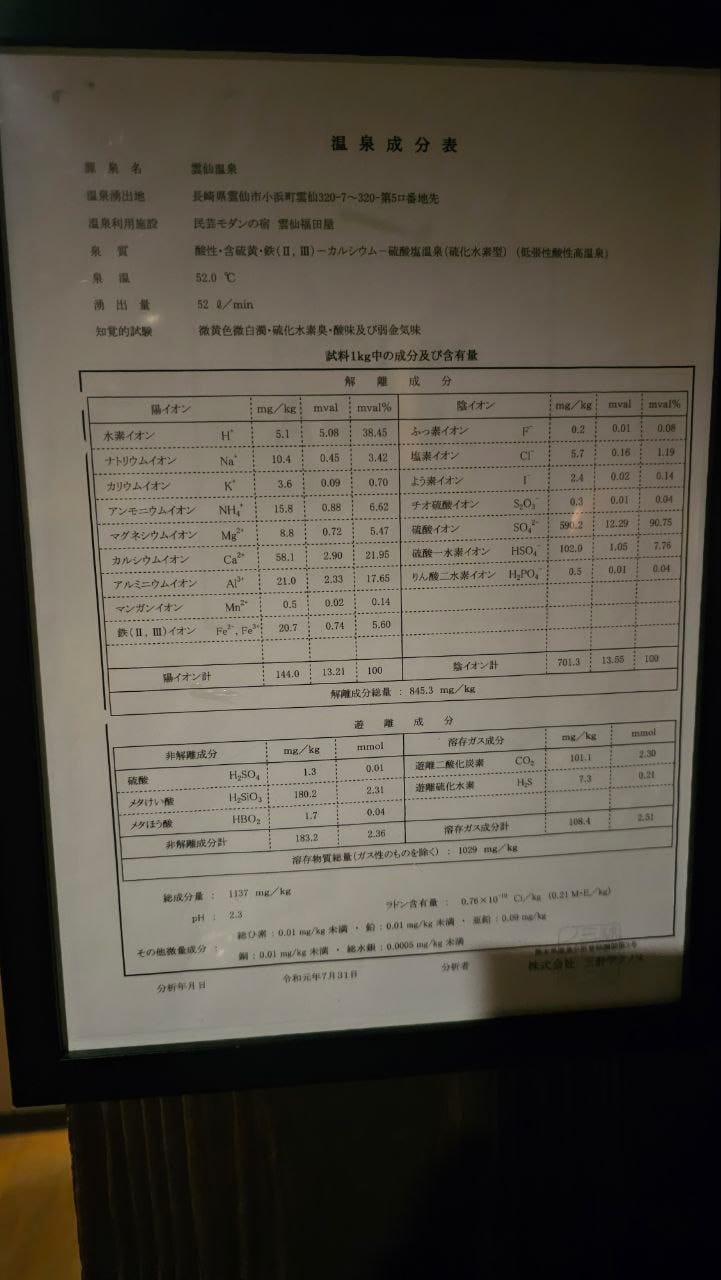 温泉成分表
源泉名 雲仙温泉
温泉湧出地 長崎県雲仙市小浜町雲仙320-7～320-第5ロ番地先
温泉利用施設 民芸モダンの宿 雲仙福田屋
泉質 酸性・含硫黄・鉄(Ⅱ,Ⅲ)－カルシウム－硫酸塩温泉(硫化水素型) (低張性酸性高温泉)
泉温 52.0 ℃
湧出量 52 ℓ/min
知覚的試験 微黄色微白濁・硫化水素臭・酸味及び弱金気味
試料1kg中の成分及び含有量
解離成分
陽イオン mg/kg mval mval% 陰イオン mg/kg mval mval%
水素イオン H⁺ 5.1 5.08 38.45 ふっ素イオン F⁻ 0.2 0.01 0.08
ナトリウムイオン Na⁺ 10.4 0.45 3.42 塩素イオン Cl⁻ 5.7 0.16 1.19
カリウムイオン K⁺ 3.6 0.09 0.70 よう素イオン I⁻ 2.4 0.02 0.14
アンモニウムイオン NH₄⁺ 15.8 0.88 6.62 チオ硫酸イオン S₂O₃⁻ 0.3 0.01 0.04
マグネシウムイオン Mg²⁺ 8.8 0.72 5.47 硫酸イオン SO₄²⁻ 590.2 12.29 90.75
カルシウムイオン Ca²⁺ 58.1 2.90 21.95 硫酸一水素イオン HSO₄⁻ 102.0 1.05 7.76
アルミニウムイオン Al³⁺ 21.0 2.33 17.65 りん酸二水素イオン H₂PO₄⁻ 0.5 0.01 0.04
マンガンイオン Mn²⁺ 0.5 0.02 0.14
鉄(Ⅱ,Ⅲ)イオン Fe²⁺, Fe³⁺ 20.7 0.74 5.60
陽イオン計 144.0 13.21 100 陰イオン計 701.3 13.55 100
解離成分総量 : 845.3 mg/kg
遊離成分
非解離成分 mg/kg mmol 溶存ガス成分 mg/kg mmol
硫酸 H₂SO₄ 1.3 0.01 遊離二酸化炭素 CO₂ 101.1 2.30
メタけい酸 H₂SiO₃ 180.2 2.31 遊離硫化水素 H₂S 7.3 0.21
メタほう酸 HBO₂ 1.7 0.04
非解離成分計 183.2 2.36 溶存ガス成分計 108.4 2.51
溶存物質総量(ガス性のものを除く) : 1029 mg/kg
総成分量 : 1137 mg/kg
ラドン含有量 : 0.76×10⁻¹⁰ Ci/kg (0.21 M・E/kg)
pH : 2.3
その他微量成分 : 総ひ素 : 0.01 mg/kg 未満 ・ 鉛 : 0.01 mg/kg 未満 ・ 亜鉛 : 0.09 mg/kg
銅 : 0.01 mg/kg 未満 ・ 総水銀 : 0.0005 mg/kg 未満
分析年月日 令和元年7月31日 分析者 株式会社